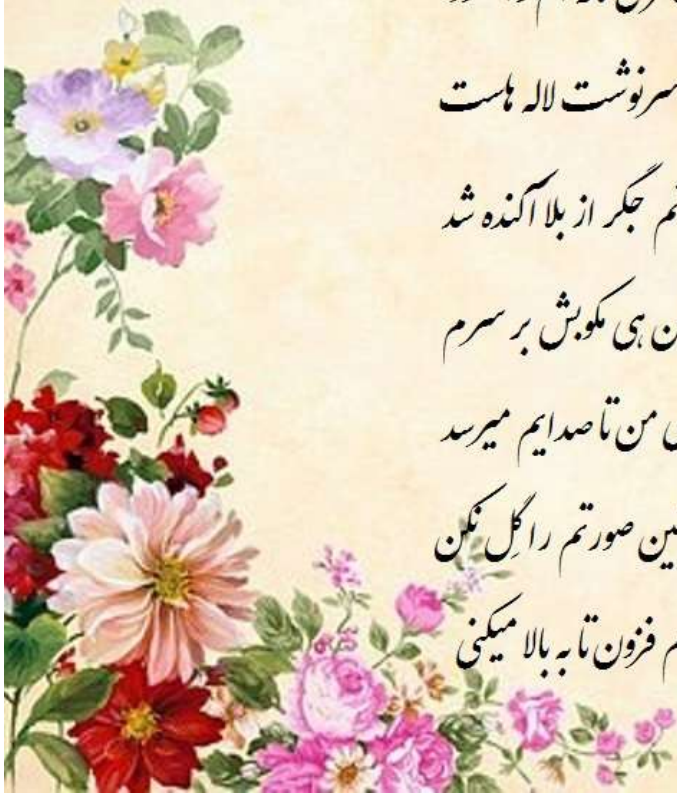 سرنوشت لاله هاست
جگر از بلا آکنده شد
هی مکوبش بر سرم
من تا صدایم میرسد
صورتم را گِل نکن
فزون تا به بالا میکنی